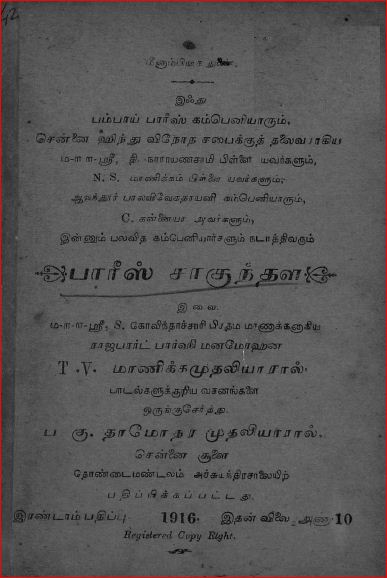 42
மீனாம்பிகை துணை.
இஃது
பம்பாய் பார்ஸி கம்பெனியாரும்,
சென்னை ஹிந்து விநோத சபைக்குத் தலைவராகிய
ம-ா-ா-ஸ்ரீ, தி. நாராயணசாமி பிள்ளை யவர்களும்,
N. S. மாணிக்கம் பிள்ளை யவர்களும்,
ஆலந்தூர் பாலவிவேகதாயனி கம்பெனியாரும்,
C. கன்னையா அவர்களும்,
இன்னும் பலவித கம்பெனியார்களும் நடாத்திவரும்
பார்ஸி சாகுந்தள
இவை
ம-ா-ா-ஸ்ரீ, S. கோவிந்தாச்சாரி பிரதம மாணாக்கனாகிய
ராஜபார்ட் பார்ஸி மனமோஹன
T. V. மாணிக்கமுதலியாரால்
பாடல்களுக்குரிய வசனங்களை
ஒருங்குசேர்த்து
ப கு. தாமோதர முதலியாரால்,
சென்னை சூளை
தொண்டைமண்டலம் அச்சுயந்திரசாலையிற்
பதிப்பிக்கப்பட்டது.
இரண்டாம் பதிப்பு. 1916. இதன் விலை அணா 10
Registered Copy Right.